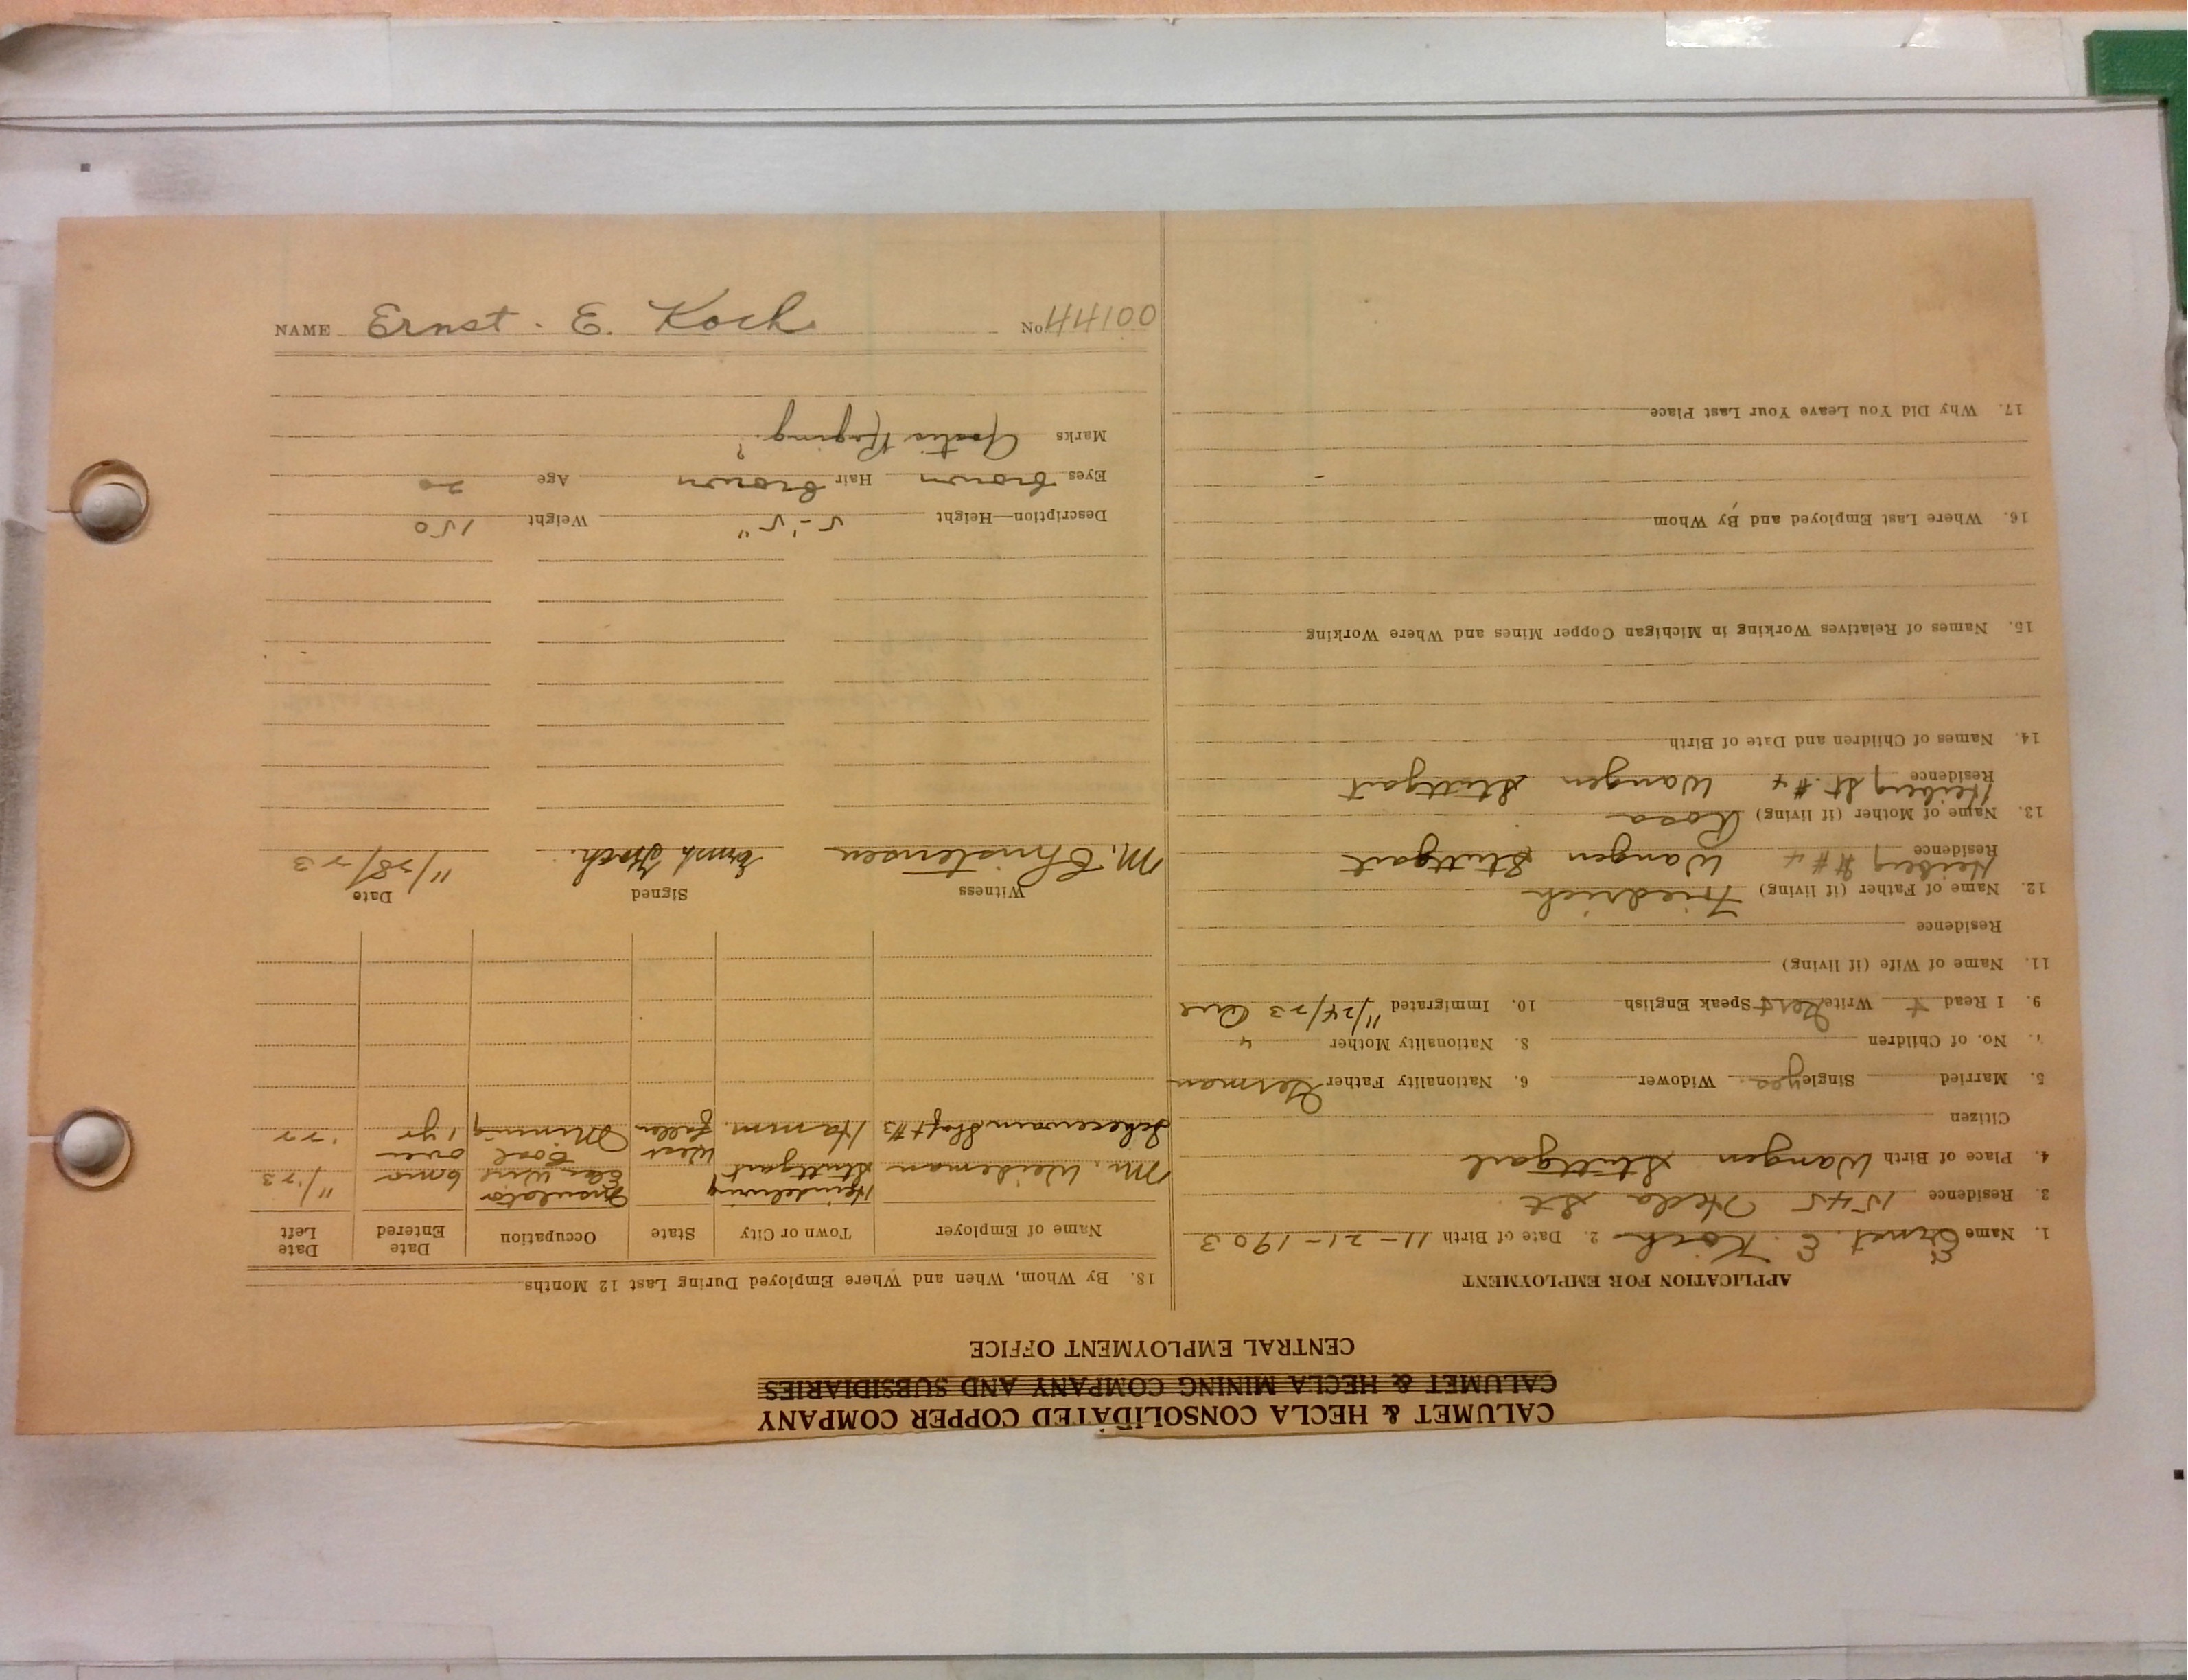 CALUMET & HECLA CONSOLIDATED COPPER COMPANY
CALUMET & HECLA MINING COMPANY AND SUBSIDIARIES
CENTRAL EMPLOYMENT OFFICE
APPLICATION FOR EMPLOYMENT
1. Name Ernst. E. Koch 2. Date of Birth 11-21-1903
3. Residence 1545 Hecla St
4. Place of Birth Wangen Stuttgart
Citizen
5. Married Single yes. Widower 6. Nationality Father German
7. No. of Children 8. Nationality Mother "
9. I Read + Write Speak English 10. Immigrated 11/24/23
11. Name of Wife (if living)
Residence
12. Name of Father (if living) Friedrich
Residence Heiberg St #4 Wangen Stuttgart
13. Name of Mother (if living) Rosa
Residence Heiberg St. #4 Wangen Stuttgart
14. Names of Children and Date of Birth
15. Names of Relatives Working in Michigan Copper Mines and Where Working
16. Where Last Employed and By Whom
17. Why Did You Leave Your Last Place
18. By Whom, When and Where Employed During Last 12 Months
Name of Employer Town or City State Occupation Date Entered Date Left
Mr. Weideman Stuttgart Insulator 6 mo 11/23
Shaft #3 Hamm. West Coal Mining over 1 yr '22
Witness Signed Date
M. Christensen Ernst Koch. 11/28/23
Description—Height 5-'5" Weight 150
Eyes brown Hair brown Age 20
Marks
NAME Ernst. E. Koch No 44100